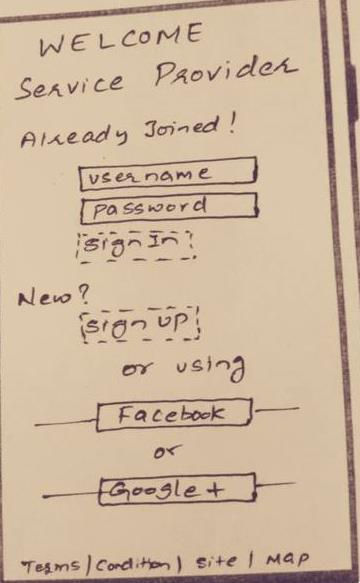 WELCOME
Service Provider
Already Joined!
username
password
sign In
New?
sign up
or using
Facebook
or
Google +
Terms | Condition | site | map